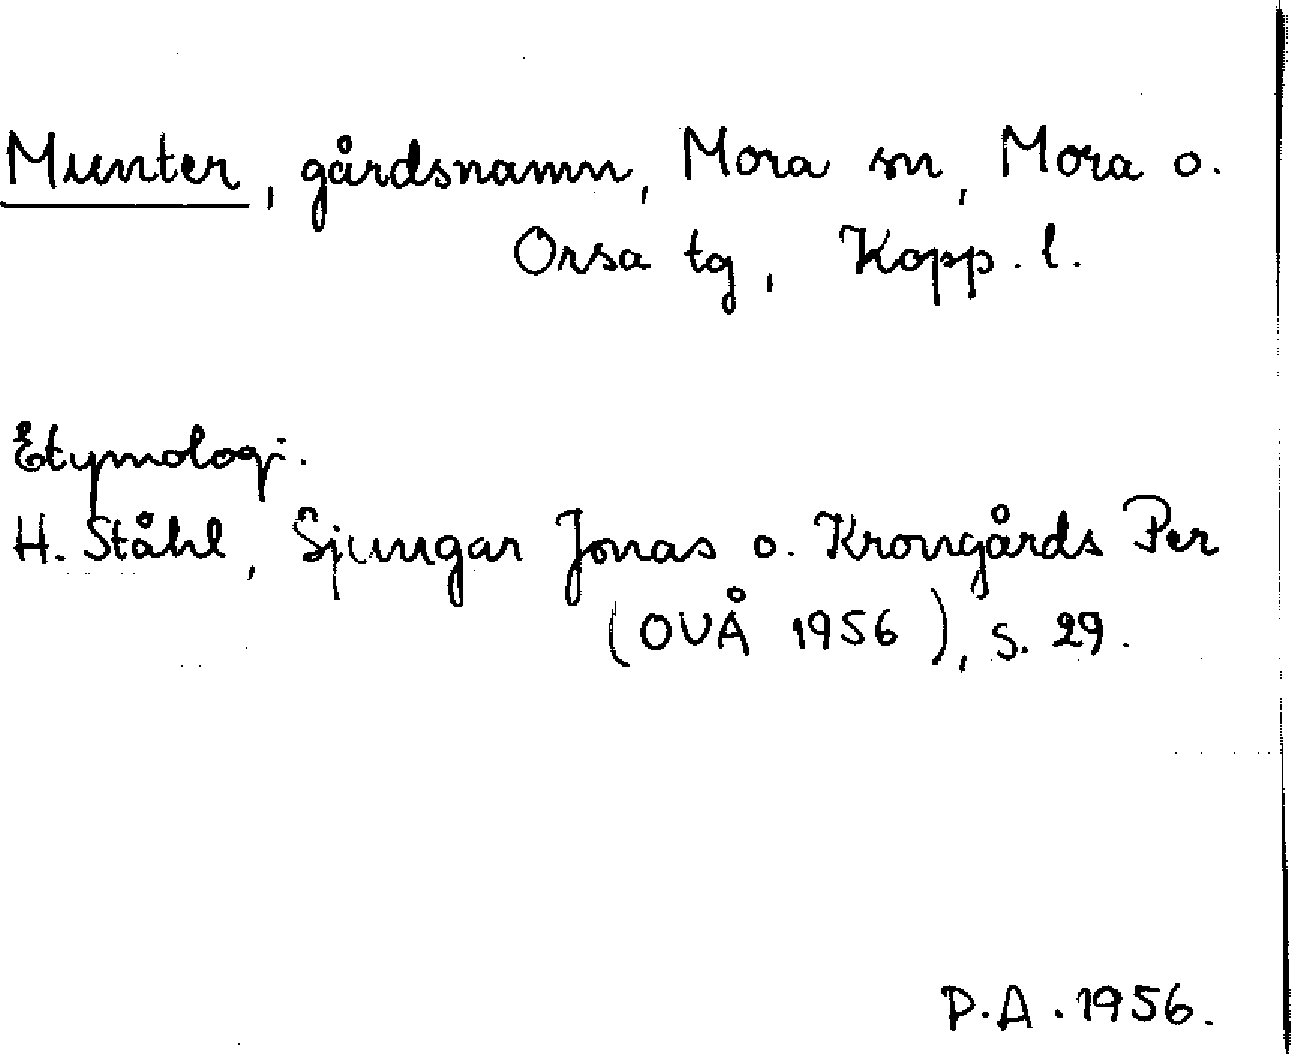 Munter, gårdsnamn, Mora sn, Mora o.
Orsa tg, Kopp. l.
Etymologi.
H. Ståhl, Sjungar Jonas o. Krongårds Per
(OVÅ 1956), s. 29.
P.A. 1956.